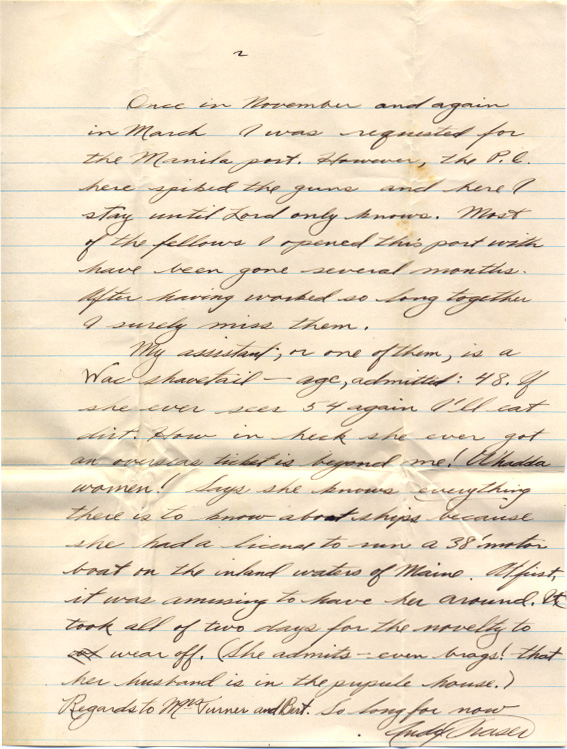 2
Once in November and again
in March I was requested for
the Manila port. However, the P.C.
here spiked the guns and here I
stay until Lord only knows. Most
of the fellows I opened this port with
have been gone several months.
After having worked so long together
I surely miss them.
My assistant, or one of them, is a
Wac shavetail — age, admitted: 48. If
she ever sees 54 again I'll eat
dirt. How in heck she ever got
an overseas ticket is beyond me! Whadda
women!! Says she knows everything
there is to know about ships because
she had a license to run a 38' motor
boat on the inland waters of Maine. At first,
it was amusing to have her around. It
took all of two days for the novelty to
wear off. (She admits — even brags! that
her husband is in the pupule house.)
Regards to Mrs Turner and Bert. So long for now
Andy Fraser